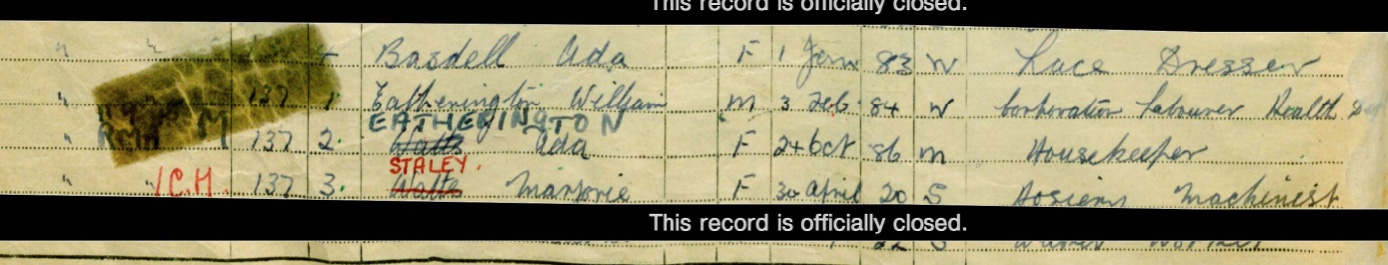 This record is officially closed.
" " 4 Basdell Ada F 1 Jan 83 W Lace Dresser
" 137 1 Eatherington William M 3 Feb 84 W Corporation Labourer Health
EATHERINGTON
" M 137 2. Watts Ada F 24 Oct 86 M Housekeeper
STALEY.
" /C.H. 137 3. Watts Marjorie F 30 April 20 S Hosiery Machinist
This record is officially closed.
S